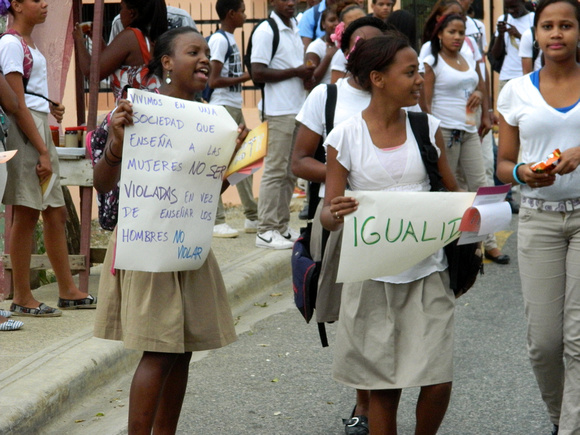 VIVIMOS EN UNA
SOCIEDAD QUE
ENSEÑA A LAS
MUJERES NO SER
VIOLADAS EN VEZ
DE ENSEÑAR LOS
HOMBRES NO
VIOLAR
IGUALD